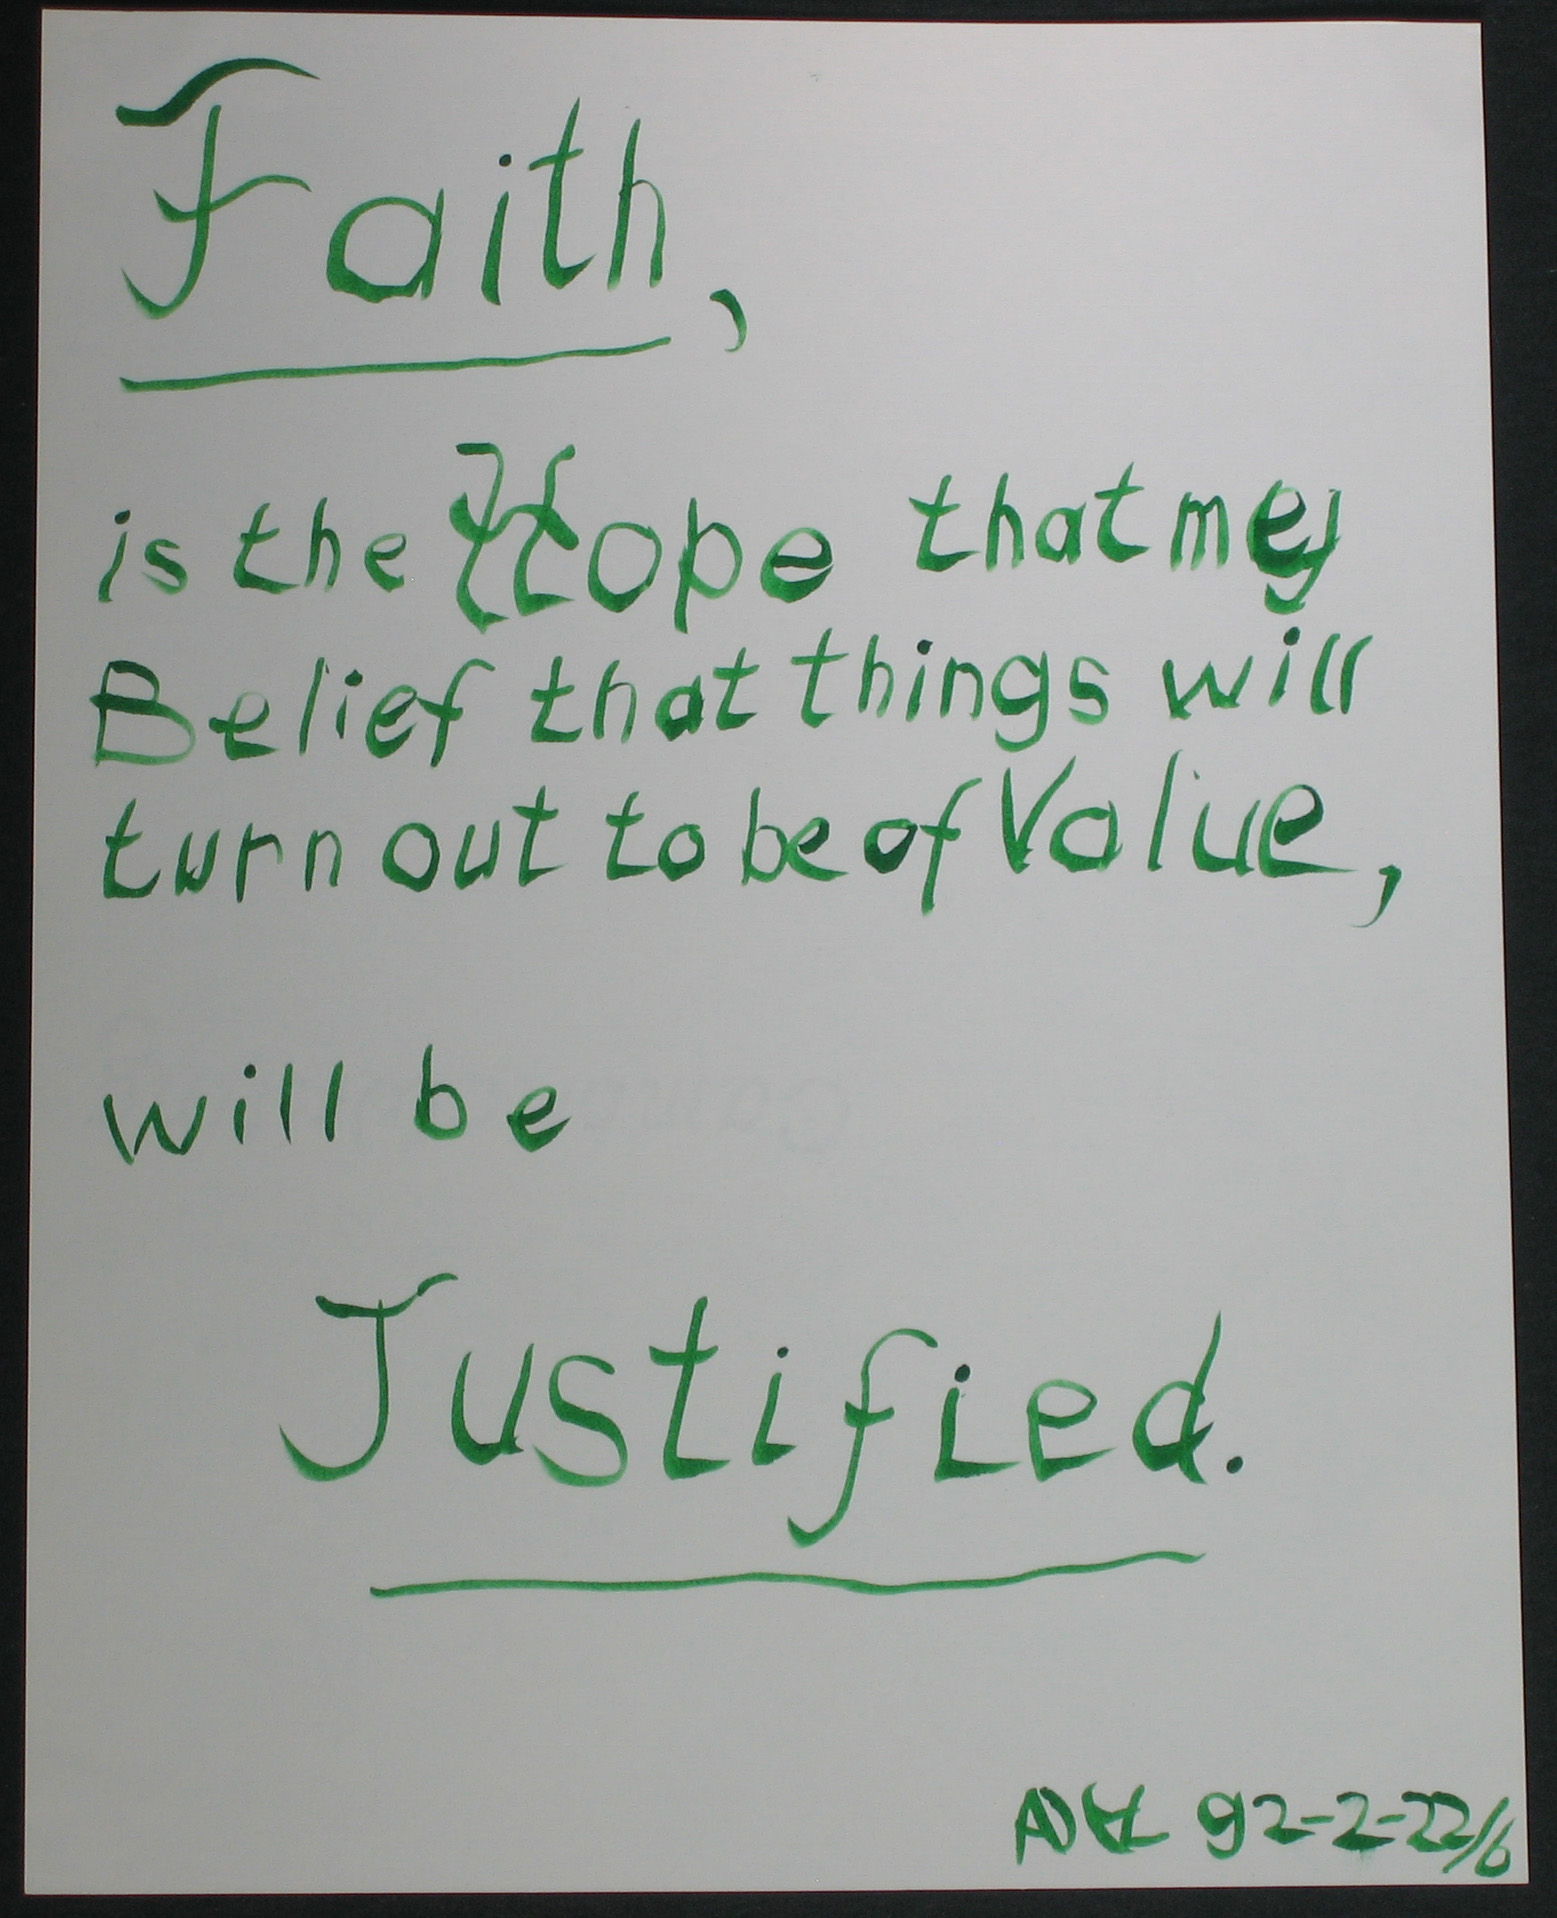 Faith,
is the Hope that my
Belief that things will
turn out to be of Value,
will be
Justified.
92-2-22/6